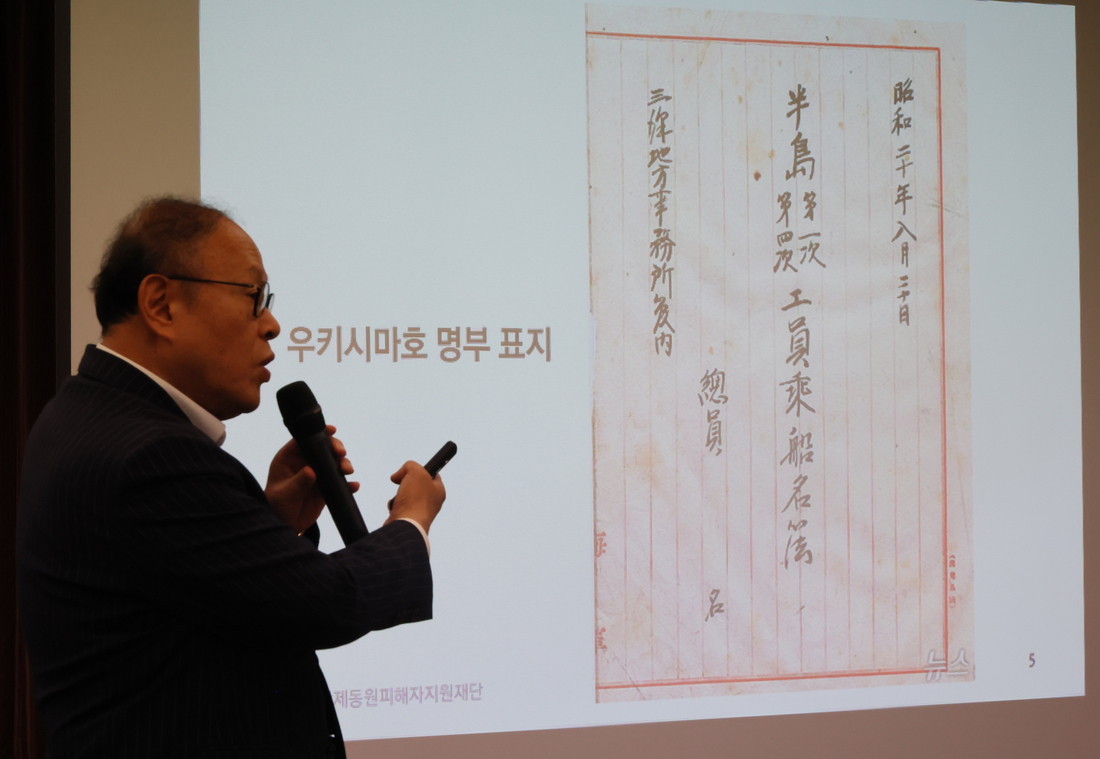 우키시마호 명부 표지
昭和二十年八月二十日
半島
第一次
第四次
工員乘船名簿
總員
名
三澤地方事務所管内
제동원피해자지원재단
뉴스
5